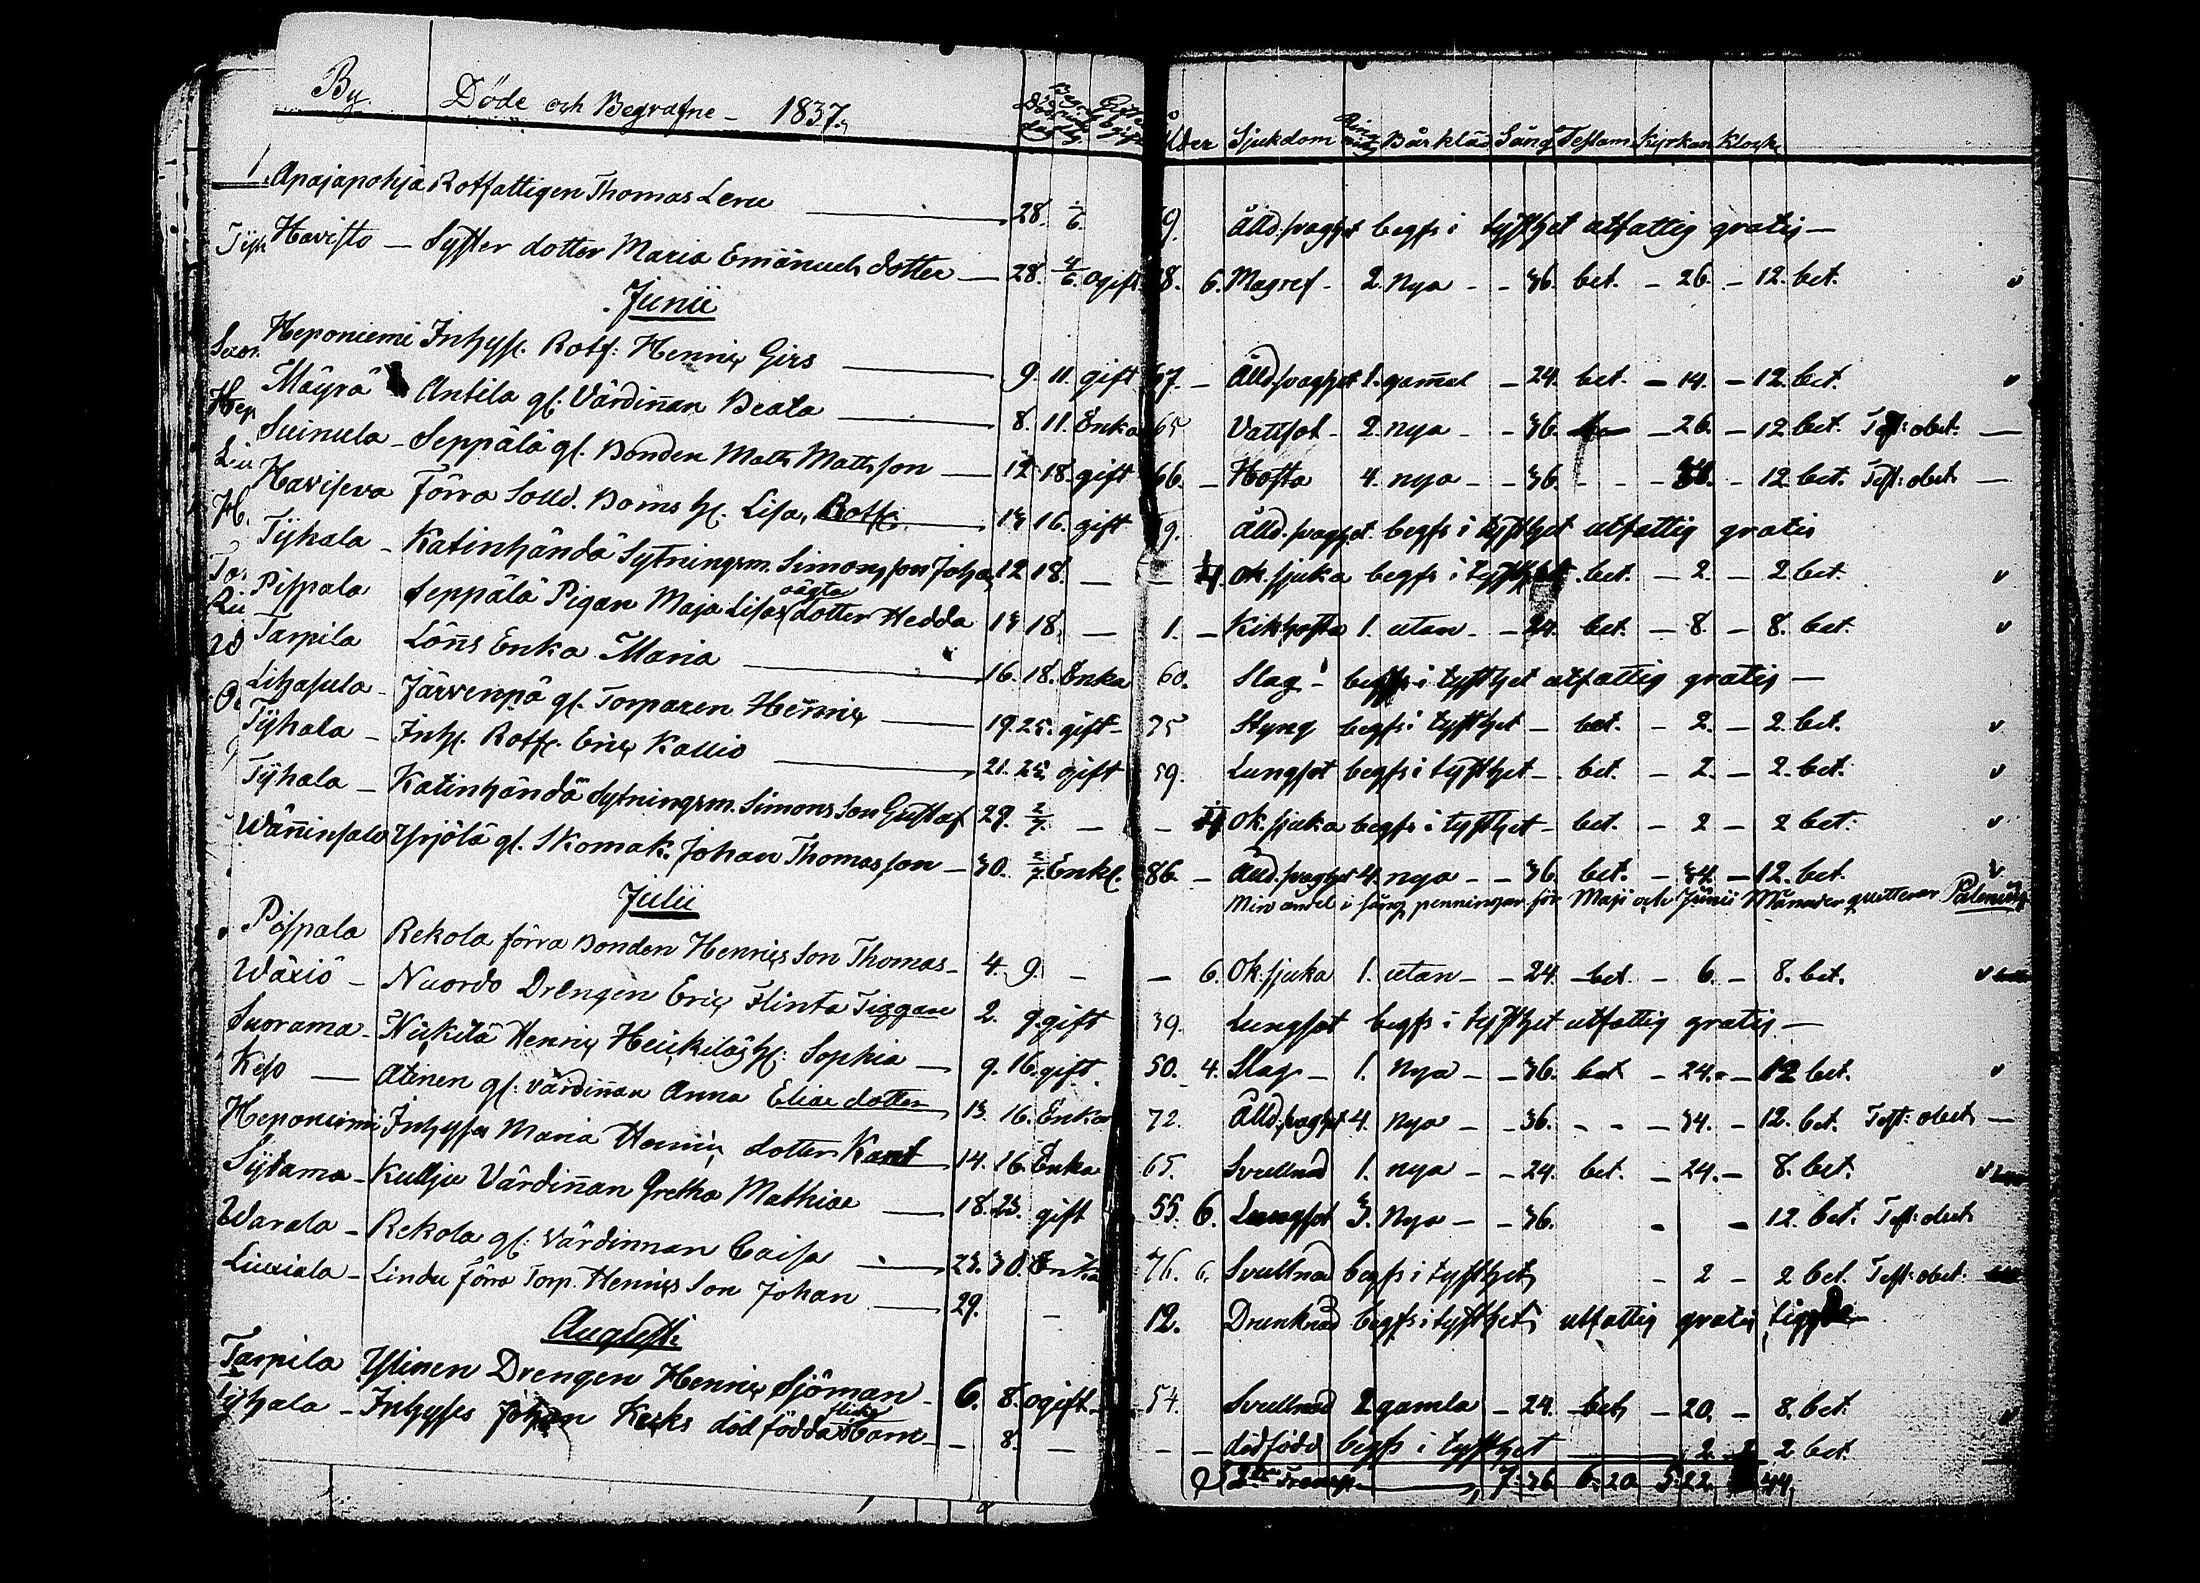 By. Döde och Begrafne - 1837. Ålder Sjukdom Bårkläd Sång Testam. Kyrkan Klock.
Apajapohja Rotfattigen Thomas Leru 28. 6. 9. Ålld. svaghet begfs i tysthet utfattig gratis
Havisto Syster dotter Maria Emanuels dotter 28. 4/6. Ogift 6. Magref 2. Nya 36. bet. 26. 12. bet.
Junii
Heponiemi Inhyss. Rotf: Henric Girs 9. 11. gift 67. Ålld. svaghet 1. gamel 24. bet. 14. 12. bet.
Mäyrä Antila gl. Värdinnan Beata 8. 11. Enka 65 Vattsot 2. nya 36. 26. 12. bet. Test: obet.
Suinula Seppälä gl. Bonden Mats Matsson 12 18. gift 66. Hosta 4. nya 36. 12. bet. Test: obet.
Haviseva Förra Solld. Boms h. Lisa, Rotf. 13 16. gift 9. Ålld. svaghet begfs i tysthet utfattig gratis
Tÿhala Katinhändä Sytningsm. Simons son Johan 12 18. Ok. sjuka begfs i tysthet bet. 2. 2 bet.
Pispala Seppälä Pigan Maja Lisas oägta dotter Hedda 13 18. 1. Kikhosta 1. utan 24. bet. 8. 8. bet.
Tarpila Löns Enka Maria 16. 18. Enka 60. Slag begfs i tysthet utfattig gratis
Lihasula Järvenpä gl. Torparen Henric 19. 25. gift 75 Styng begfs i tysthet bet. 2. 2. bet.
Tÿhala Inh. Rotf. Eric Kallio 21. 25. gift 59. Lungsot begfs i tysthet bet. 2. 2. bet.
Tÿhala Katinhändä Sytningsm. Simons Son Gustaf 29. 2/7. Ok. sjuka begfs i tysthet bet. 2 2 bet.
Wännisalo Yrjölä gl. Skomak. Johan Thomasson 30. 2/7. Enkl. 86. Ålld. svaghet 4. nya 36. bet. 34. 12. bet.
Min andel i sång penningar för Maji och Junii Månader quitterar
Julii
Pispala Rekola förra Bonden Henrics Son Thomas 4. 9. 6. Ok. sjuka 1. utan 24. bet. 6. 8. bet.
Wäxiö Nuordo Drengen Eric Flinta Tiggare 2. 9. gift 39. Lungsot begfs i tysthet utfattig gratis
Suorama Nickilä Henric Heickiläs h: Sophia 9. 16. gift 50. 4. Slag 1. Nya 36. bet 24. 12 bet.
Keso Atinen gl: värdinnan Anna Elias dotter 13. 16. Enka 72. Ålld. svaghet 4. Nya 36. 34. 12. bet. Test: obet
Heponiemi Inhyses Maria Henrics dotter 14. 16. Enka 65. Svullnad 1. nya 24. bet. 24. 8. bet.
Sÿtama Kulju Värdinnan Gretha Mathiae 18. 23. gift 55. 6. Lungsot 3. Nya 36. 12. bet. Test: obet
Warala Rekola gl: Värdinnan Caisa 23. 30. Enka 76. 6. Svullnad begfs i tysthet 2 2 bet. Test: obet:
Liuxiala Lindu förra Torp. Henrics Son Johan 29. 12. Drunknad begfs i tysthet utfattig gratis
Augusti
Tarpila Ylinen Drengen Henric Sjöman 6. 8. ogift 54. Svullnad 2 gamla 24. bet 20. 8. bet.
Tÿhala Inhyses Johan Keks död födda flicko Barn 8. dödfödd begfs i tysthet 2. 2 bet.
7:36 6:20 5:22 44.